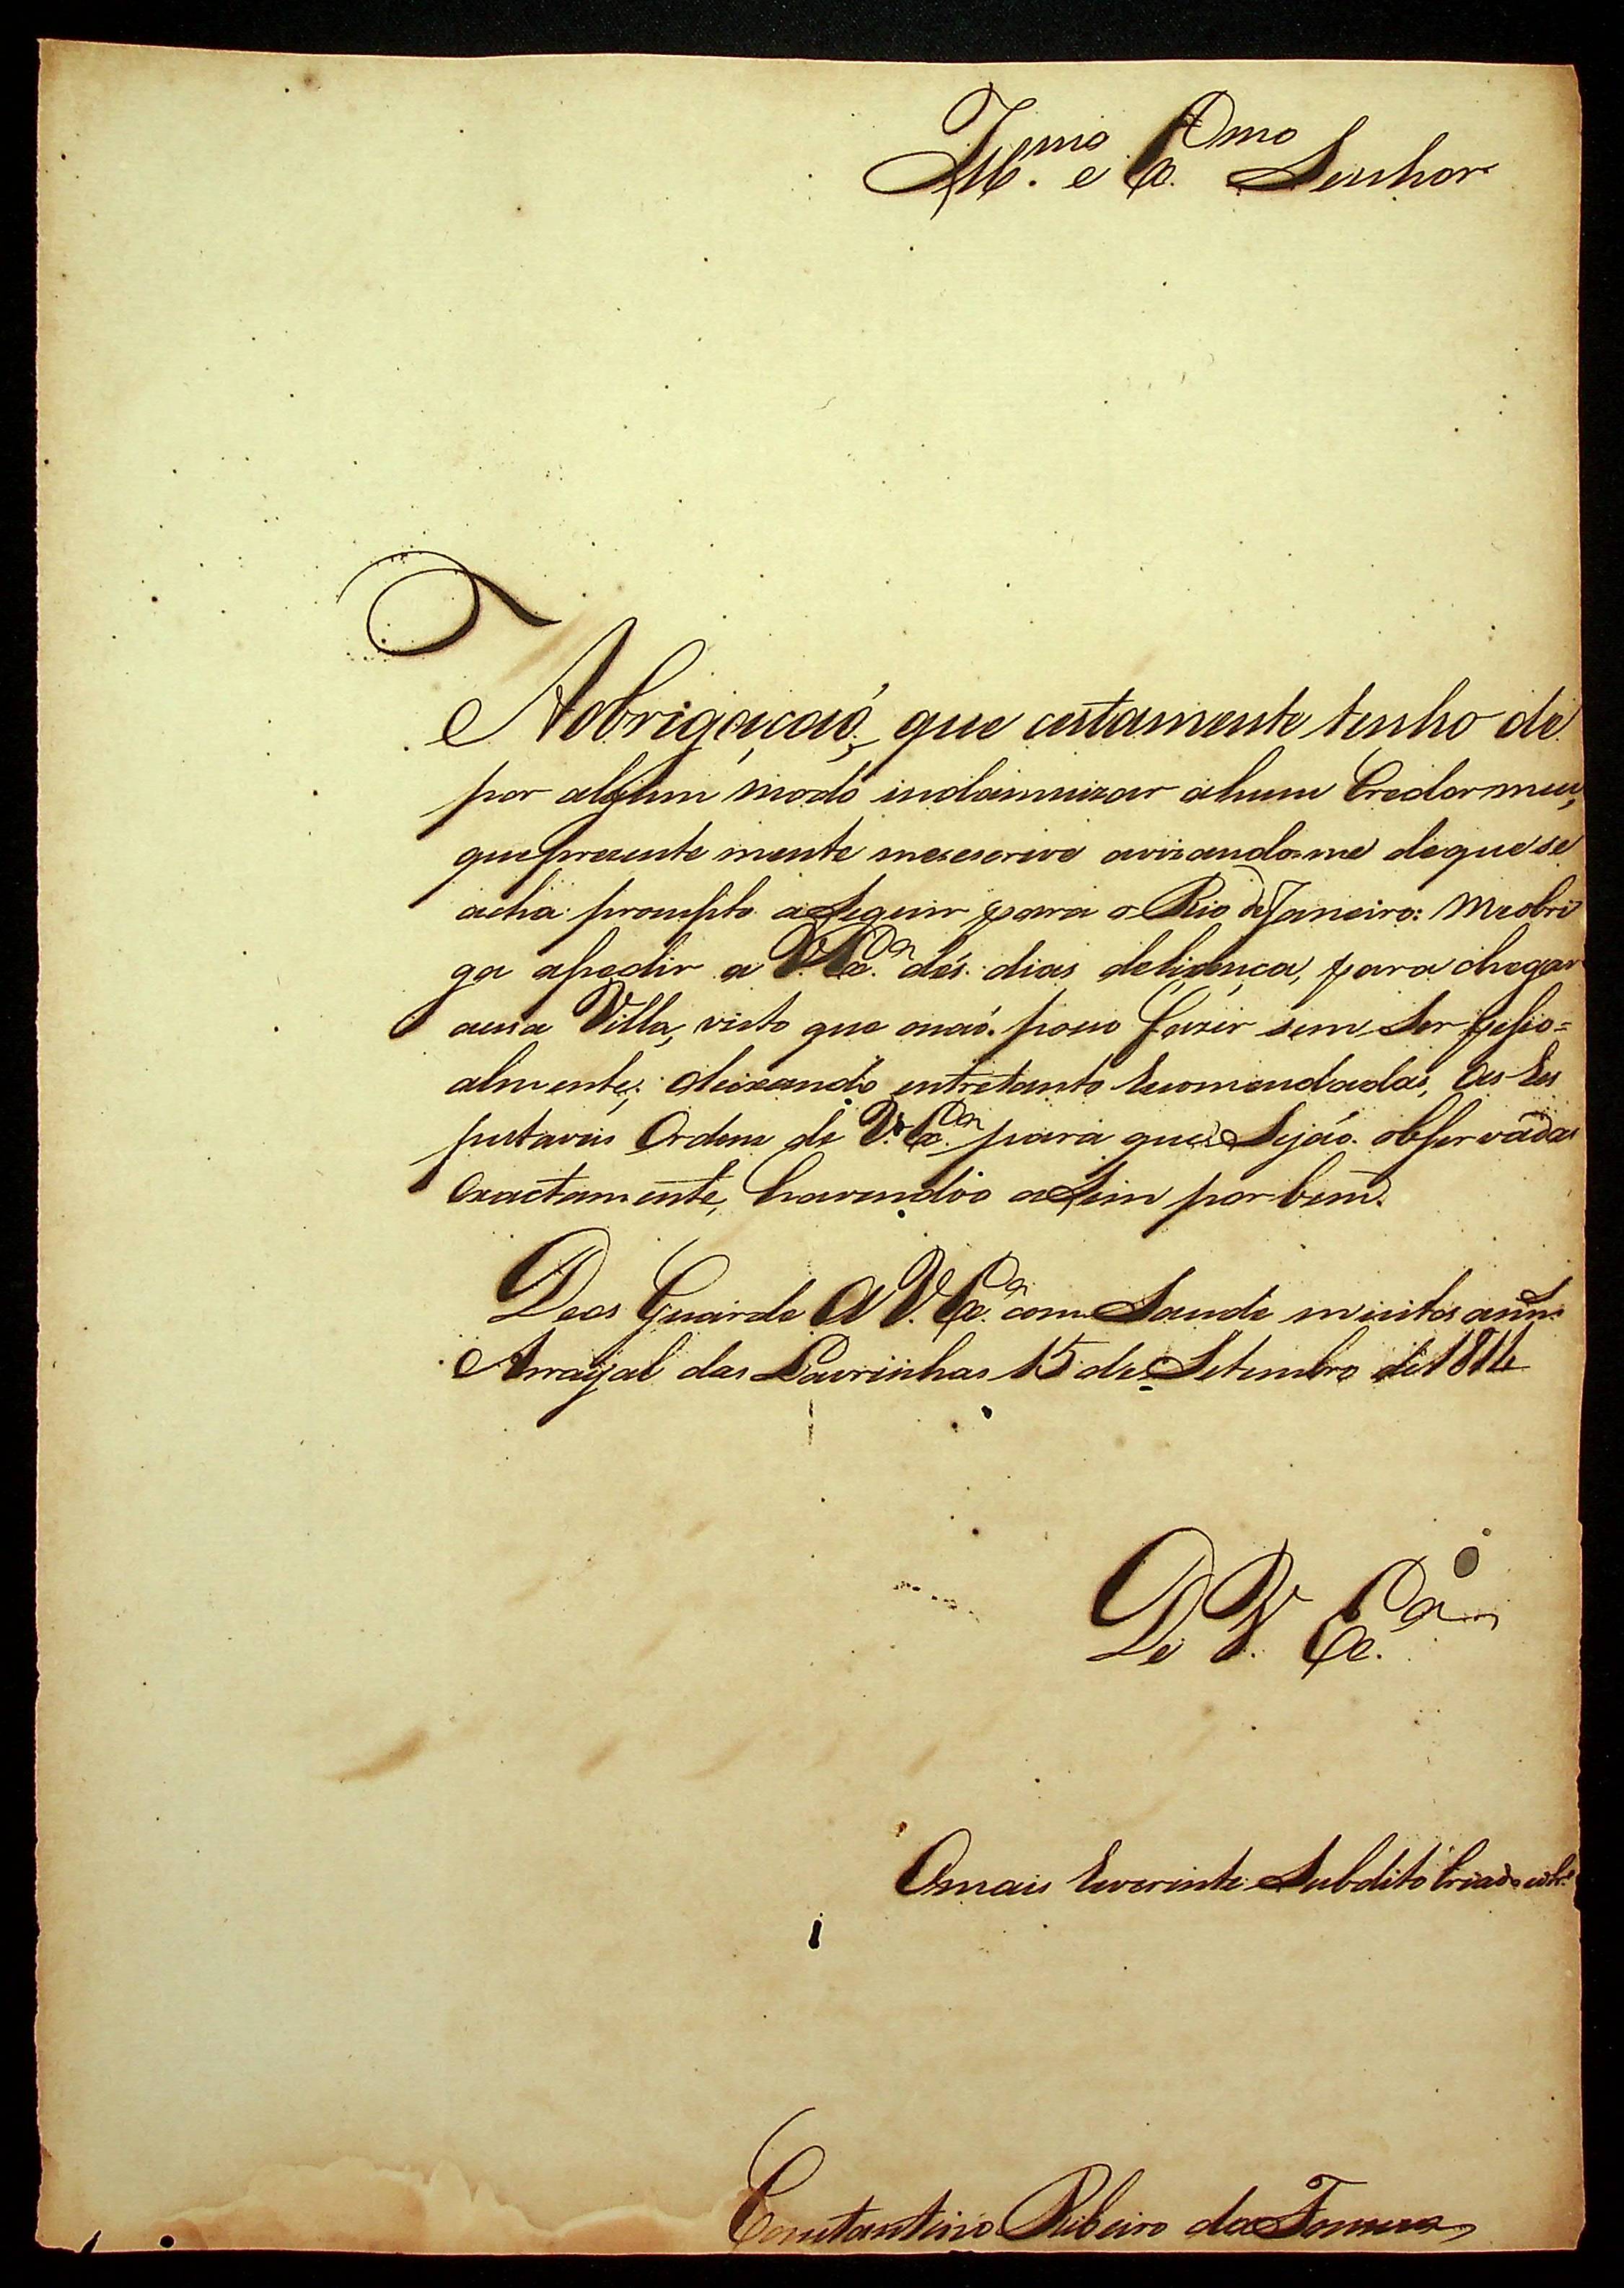 Ill.mo e Ex.mo Senhor
A obrigaçaõ, que certamente tenho de
por algum modo indamnizar ahum Credor meu,
que prezente mente me escreve avizandome de que se
acha prompto a Seguir para o Rio de Janeiro: me obri
ga apedir a V. Ex.ca dés dias de licença, para chegar
aessa Villa, visto que naõ poço fazer sem Ser peso=
almente; deixando entretanto Recomendadas, as Res
peitaveis Ordens de V. Ex.ca para que Sejáo observadas
exactamente, havendoo asim por bem.
Deos Guarde A V. Ex.ca com Saude muitos ann.s
Arrayal das Lavrinhas 15 de Setembro de 1814
De V. Ex.ca
O mais Reverente Subdito Criado
Constantino Ribeiro da Fonseca